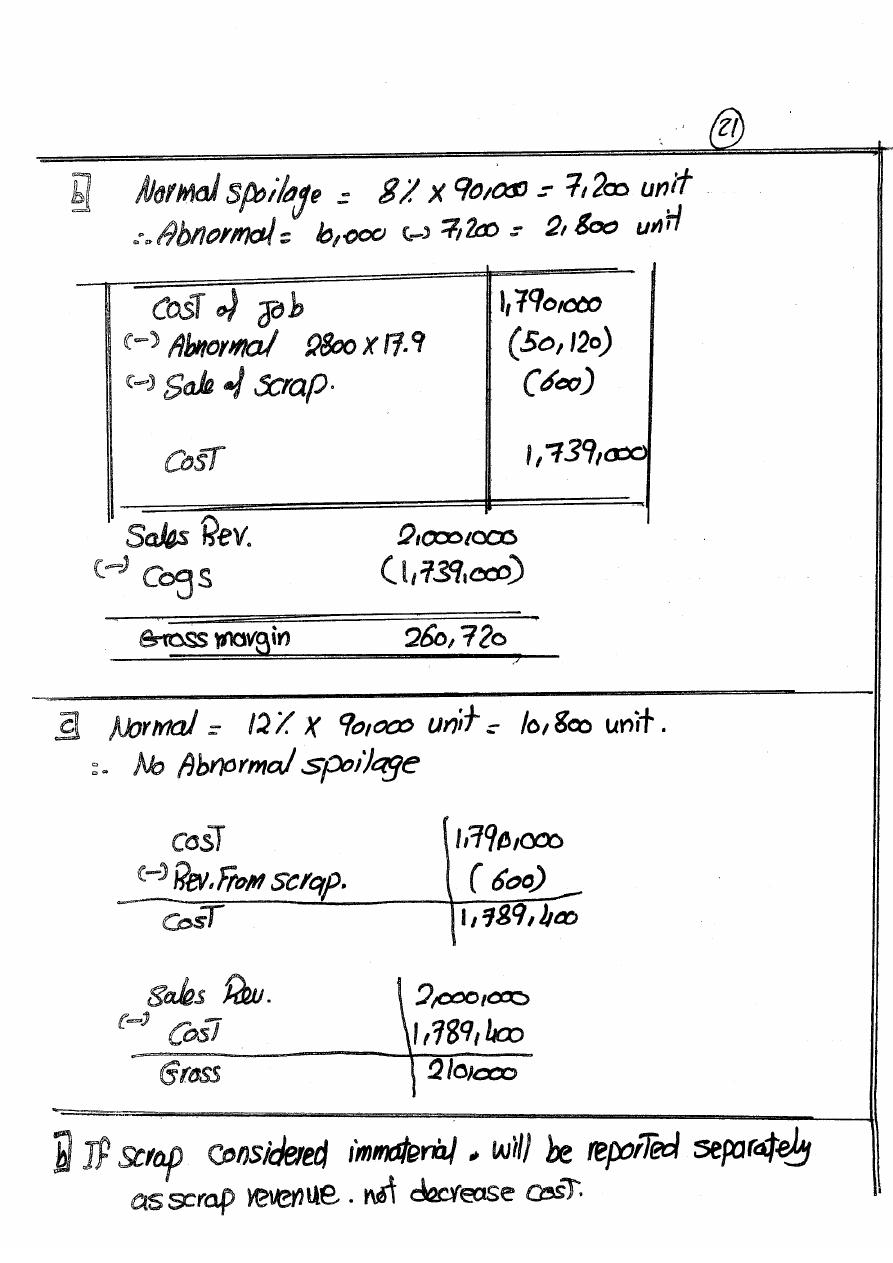 21
b Normal spoilage = 8% x 90,000 = 7,200 unit
∴ Abnormal = 10,000 (-) 7,200 = 2,800 unit
Cost of Job 1,790,000
(-) Abnormal 2800 x 17.9 (50,120)
(-) Sale of scrap. (600)
Cost 1,739,000
Sales Rev. 2,000,000
(-) Cogs (1,739,000)
Gross margin 260,720
c Normal = 12% x 90,000 unit = 10,800 unit.
∴ No Abnormal spoilage
Cost 1,790,000
(-) Rev. From scrap. (600)
Cost 1,789,400
Sales Rev. 2,000,000
(-) Cost 1,789,400
Gross 210,000
b If scrap considered immaterial. will be reported separately
as scrap revenue. not decrease cost.